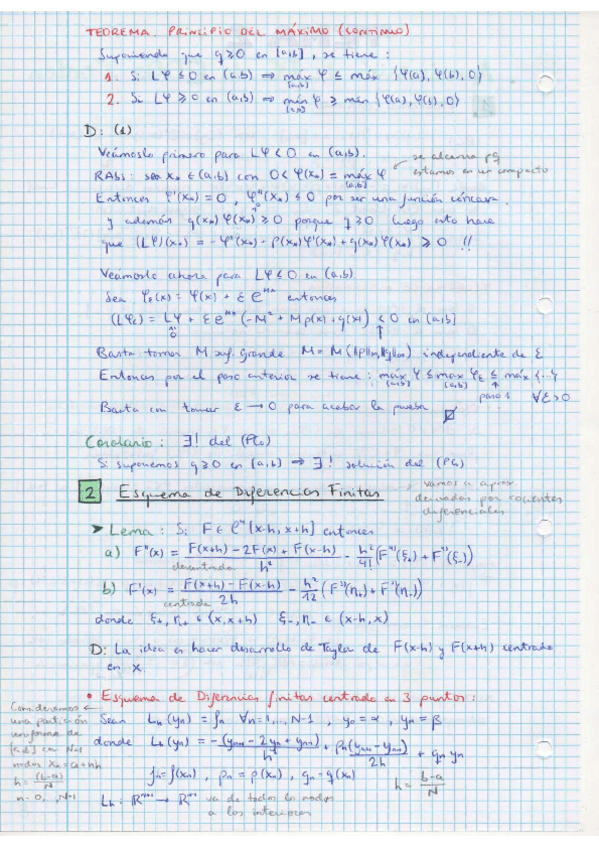 TEOREMA. PRINCIPIO DEL MÁXIMO (CONTINUO)
Suponiendo que q≥0 en [a,b], se tiene:
1. Si Lφ ≤ 0 en (a,b) ⇒ máx φ ≤ máx {φ(a), φ(b), 0}
[a,b]
2. Si Lφ ≥ 0 en (a,b) ⇒ mín φ ≥ mín {φ(a), φ(b), 0}
[a,b]
D: (1)
Veámoslo primero para Lφ < 0 en (a,b).
se alcanza pq
estamos en un compacto
RAbs: sea x₀ ∈ (a,b) con 0 < φ(x₀) = máx φ
[a,b]
Entonces φ'(x₀) = 0, φ''(x₀) ≤ 0 por ser una función cóncava.
y además q(x₀)φ(x₀) ≥ 0 porque q ≥ 0 luego esto hace
que (Lφ)(x₀) = -φ''(x₀) - p(x₀)φ'(x₀) + q(x₀)φ(x₀) ≥ 0 !!
Veámoslo ahora para Lφ ≤ 0 en (a,b)
Sea φε(x) = φ(x) + ε e^{Mx} entonces
(Lφε) = Lφ + ε e^{Mx} (-M² + Mp(x) + q(x)) < 0 en [a,b]
Basta tomar M suf. grande M = M(‖p‖∞, ‖q‖∞) independiente de ε
Entonces por el paso anterior se tiene: máx φ ≤ máx φε ≤ máx {...}
[a,b] [a,b] paso 1 ∀ε>0
Basta con tomar ε → 0 para acabar la prueba
Corolario: ∃! del (PC₀)
Si suponemos q ≥ 0 en [a,b] ⇒ ∃! solución del (PC₀)
2 Esquema de Diferencias Finitas
vamos a aprox
derivadas por cocientes
diferenciales
➤ Lema: Si F ∈ C⁴[x-h, x+h] entonces
a) F''(x) = (F(x+h) - 2F(x) + F(x-h))/h² - h²/4! (F⁴⁾(ξ₊) + F⁴⁾(ξ₋))
b) F'(x) = (F(x+h) - F(x-h))/2h - h²/12 (F³⁾(η₊) + F³⁾(η₋))
centrada
donde ξ₊, η₊ ∈ (x, x+h) ξ₋, η₋ ∈ (x-h, x)
D: La idea es hacer desarrollo de Taylor de F(x-h) y F(x+h) centrado
en x.
• Esquema de Diferencias finitas centrado en 3 puntos:
Consideramos
una partición
uniforme de
[a,b] con N+1
nodos xₙ = a+nh
h = (b-a)/N
n=0,..,N+1
Sean Lₕ(yₙ) = fₙ ∀n=1,..., N-1, y₀ = α, yₙ = β
donde Lₕ(yₙ) = -(yₙ₊₁ - 2yₙ + yₙ₋₁)/h² + pₙ(yₙ₊₁ - yₙ₋₁)/2h + qₙ yₙ
fₙ = f(xₙ), pₙ = p(xₙ), qₙ = q(xₙ) h = (b-a)/N
va de todos los nodos
a los interiores